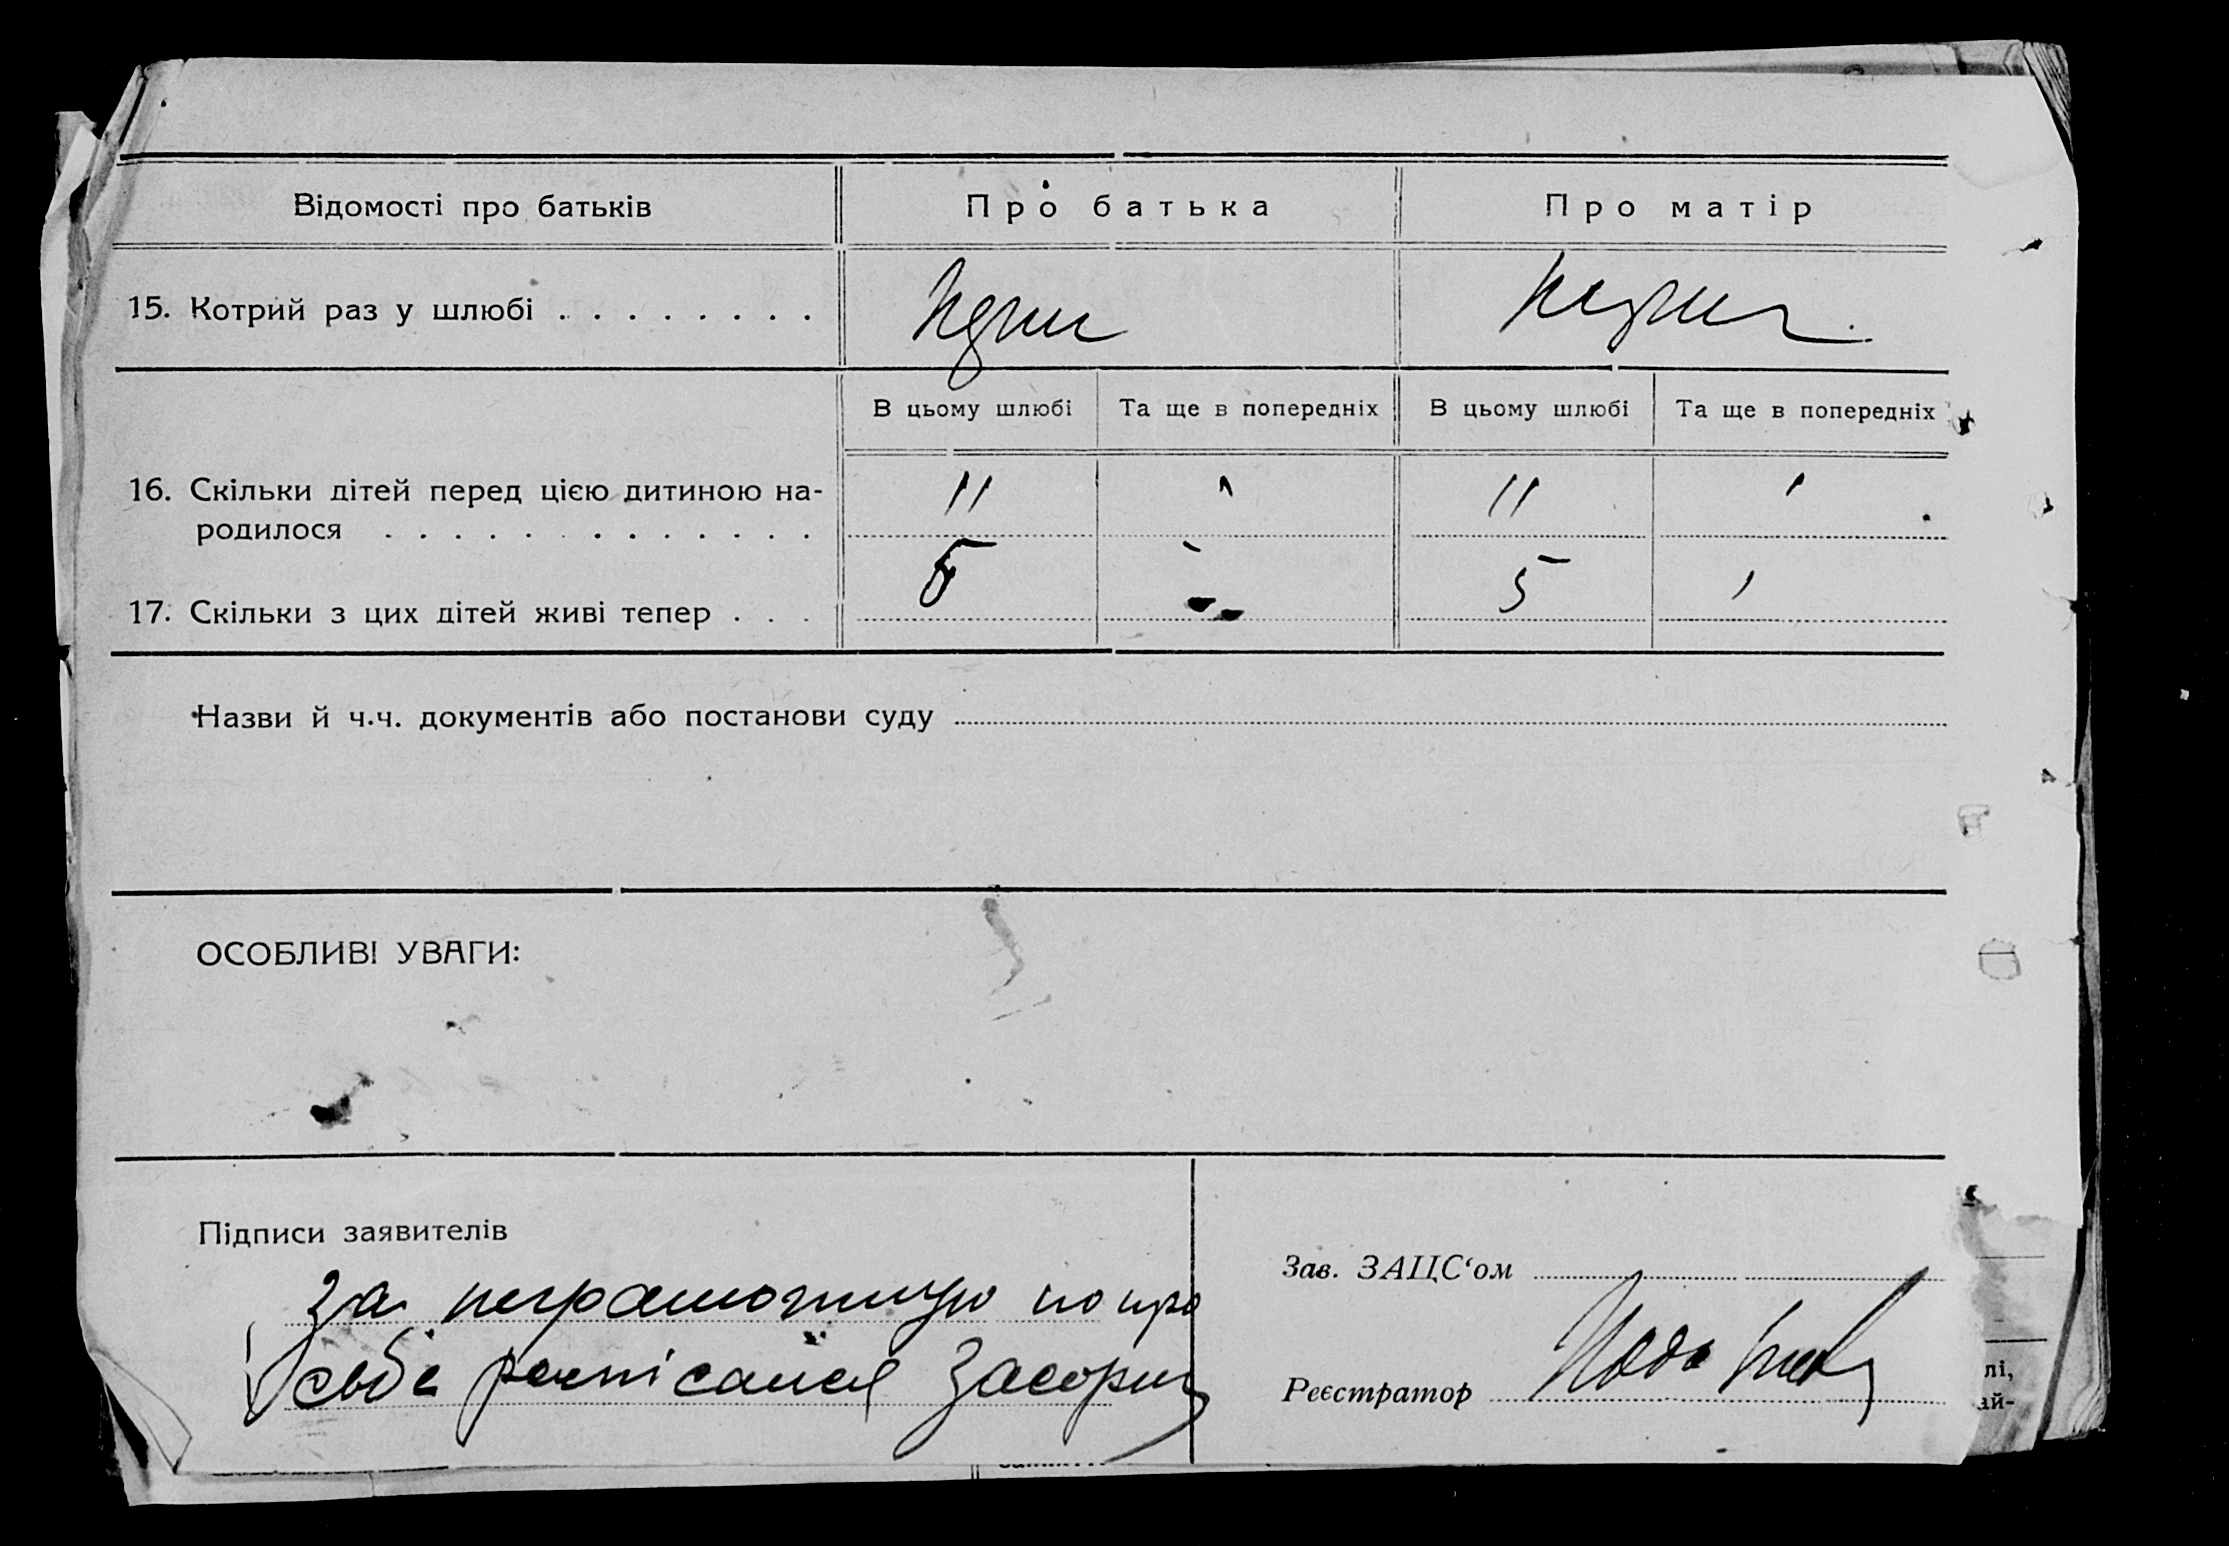 Відомості про батьків
Про батька
Про матір
15. Котрий раз у шлюбі . . . . . . . .
В цьому шлюбі
Та ще в попередніх
В цьому шлюбі
Та ще в попередніх
16. Скільки дітей перед цією дитиною на-
родилося . . . . . . . . . . . . .
11
11
17. Скільки з цих дітей живі тепер . . .
5
5
Назви й ч.ч. документів або постанови суду
ОСОБЛИВІ УВАГИ:
Підписи заявителів
За неграмотную по про
сьбе
Зав. ЗАЦС‘ом
Реєстратор
лі,
ай-